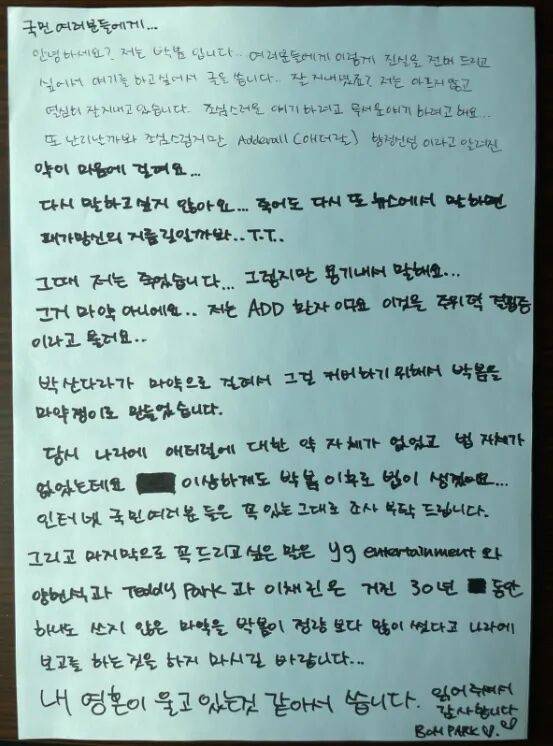 국민 여러분들에게...
안녕하세요? 저는 박봄 입니다.. 여러분들에게 이렇게 진실을 전해 드리고
싶어서 얘기를 하고싶어서 글을 씁니다.. 잘 지내셨죠? 저는 아프지 않고
열심히 잘 지내고 있습니다. 조심스러운 얘기 하려고 무서운 얘기 하려고 해요...
또 난리날까봐 조심스럽지만 Adderall (애더럴) 향정신성 이라고 알려진
약이 마음에 걸려요...
다시 말하고 싶지 않아요... 죽어도 다시 또 뉴스에서 말하면
패가망신의 지름길일까봐.. T.T..
그때 저는 죽었습니다... 그렇지만 용기내서 말해요...
그거 마약 아니에요.. 저는 ADD 환자이구요 이것을 주위력 결핍증
이라고 불러요..
박산다라가 마약으로 걸려서 그걸 커버하기 위해서 박봄을
마약쟁이로 만들었습니다.
당시 나라에 애터럴에 대한 약 자체가 없었고 법 자체가
없었는데요 이상하게도 박봄 이후로 법이 생겼어요...
인터넷 국민 여러분 들은 꼭 있는 그대로 조사 부탁 드립니다.
그리고 마지막으로 꼭 드리고 싶은 말은 yg entertainment 와
양현석과 Teddy Park 과 이채린은 거진 30년 동안
하나도 쓰지 않은 마약을 박봄이 정량 보다 많이 썼다고 나라에
보고를 하는 것을 하지 마시길 바랍니다...
내 영혼이 울고 있는것 같아서 씁니다. 읽어 주셔서
감사합니다
BOM PARK ♡.